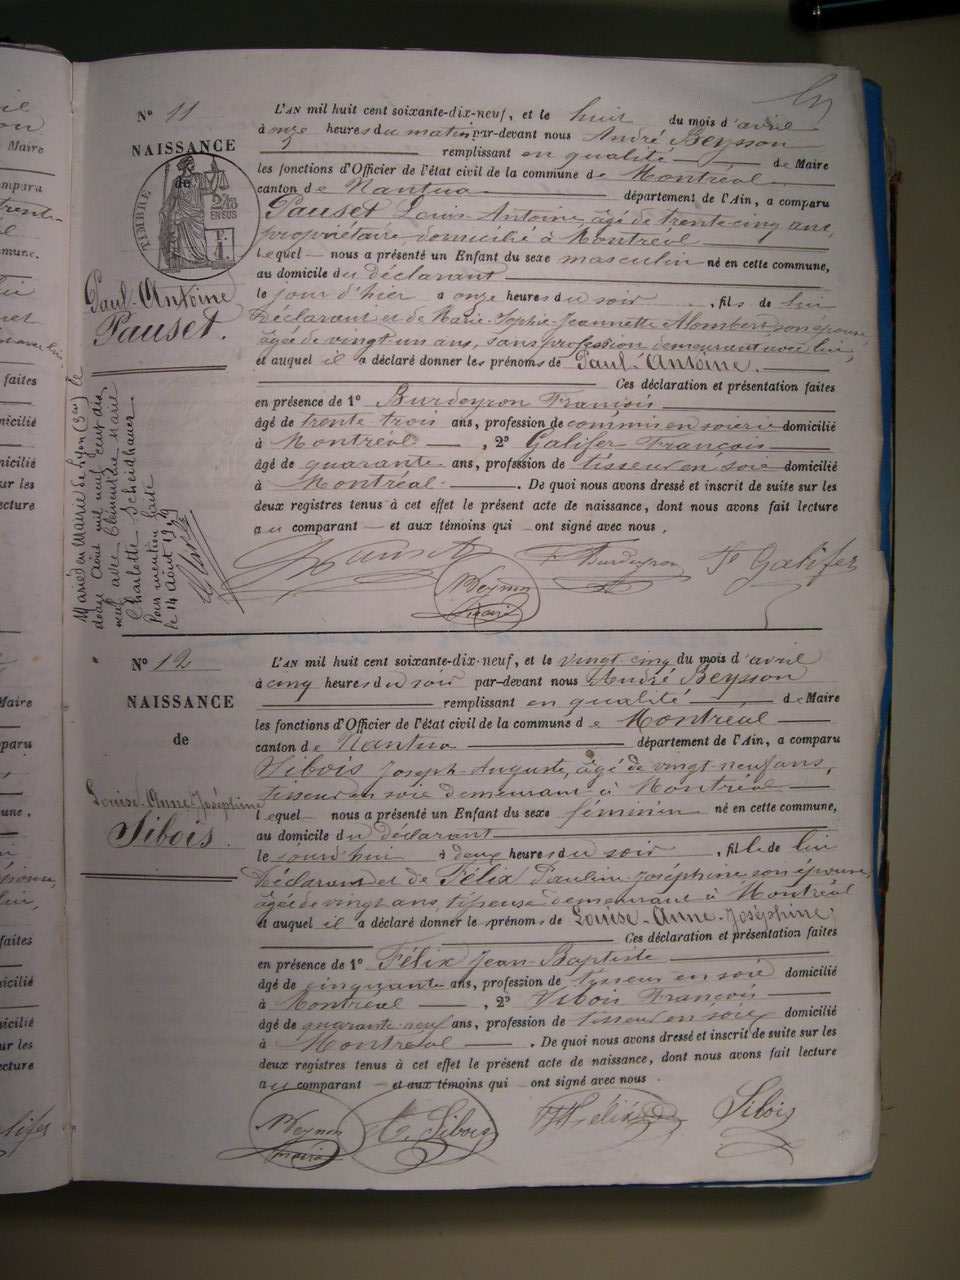 Nº 11
NAISSANCE
de
TIMBRE
2/10
EN SUS
Paul-Antoine
Pauset.
Marié en Mairie de Lyon (3me) le
douze Août mil neuf cent dix
neuf avec Clémentine Marie
Charlotte Scheidhauer
Pour mention faite
le 14 Août 1919
L'AN mil huit cent soixante-dix-neuf, et le huit du mois d'avril
à onze heures du matin par-devant nous André Beysson
remplissant en qualité de Maire
les fonctions d'Officier de l'état civil de la commune de Montréal
canton de Nantua département de l'Ain, a comparu
Pauset Louis-Antoine, âgé de trente cinq ans,
propriétaire domicilié à Montréal
Lequel nous a présenté un Enfant du sexe masculin né en cette commune,
au domicile du déclarant
le jour d'hier à onze heures du soir, fils de lui
Déclarant et de Marie-Sophie-Jeannette Alombert son épouse
âgée de vingt un ans, sans profession demeurant avec lui,
et auquel il a déclaré donner les prénoms de Paul-Antoine.
Ces déclaration et présentation faites
en présence de 1º Burdeyron François
âgé de trente trois ans, profession de commis en soierie domicilié
à Montréal, 2º Galifer François
âgé de quarante ans, profession de tisseur en soie domicilié
à Montréal. De quoi nous avons dressé et inscrit de suite sur les
deux registres tenus à cet effet le présent acte de naissance, dont nous avons fait lecture
au comparant et aux témoins qui ont signé avec nous.
Pauset Burdeyron Fs Galifer
Beysson
maire
Nº 12
NAISSANCE
de
Louise-Anne-Joséphine
Sibois.
L'AN mil huit cent soixante-dix-neuf, et le vingt cinq du mois d'avril
à cinq heures du soir par-devant nous André Beysson
remplissant en qualité de Maire
les fonctions d'Officier de l'état civil de la commune de Montréal
canton de Nantua département de l'Ain, a comparu
Sibois Joseph-Auguste, âgé de vingt-neuf ans,
tisseur en soie demeurant à Montréal
Lequel nous a présenté un Enfant du sexe féminin né en cette commune,
au domicile du déclarant
le jourd'hui à deux heures du soir, fille de lui
Déclarant et de Félix Pauline-Joséphine son épouse
âgée de vingt ans, tisseuse demeurant à Montréal
et auquel il a déclaré donner les prénoms de Louise-Anne-Joséphine,
Ces déclaration et présentation faites
en présence de 1º Félix Jean-Baptiste
âgé de cinquante ans, profession de tisseur en soie domicilié
à Montréal, 2º Sibois François
âgé de quarante-neuf ans, profession de tisseur en soie, domicilié
à Montréal. De quoi nous avons dressé et inscrit de suite sur les
deux registres tenus à cet effet le présent acte de naissance, dont nous avons fait lecture
au comparant et aux témoins qui ont signé avec nous.
Beysson Sibois Félix Sibois
maire